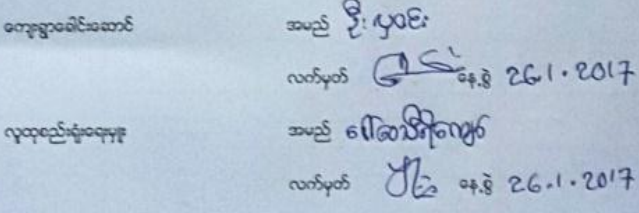 ကျေးရွာခေါင်းဆောင် အမည် ဦးလှဝင်း
လက်မှတ် နေ့စွဲ 26.1.2017
လူထုစည်းရုံးရေးမှူး အမည် ဒေါ်သီရိကျော်
လက်မှတ် နေ့စွဲ 26.1.2017